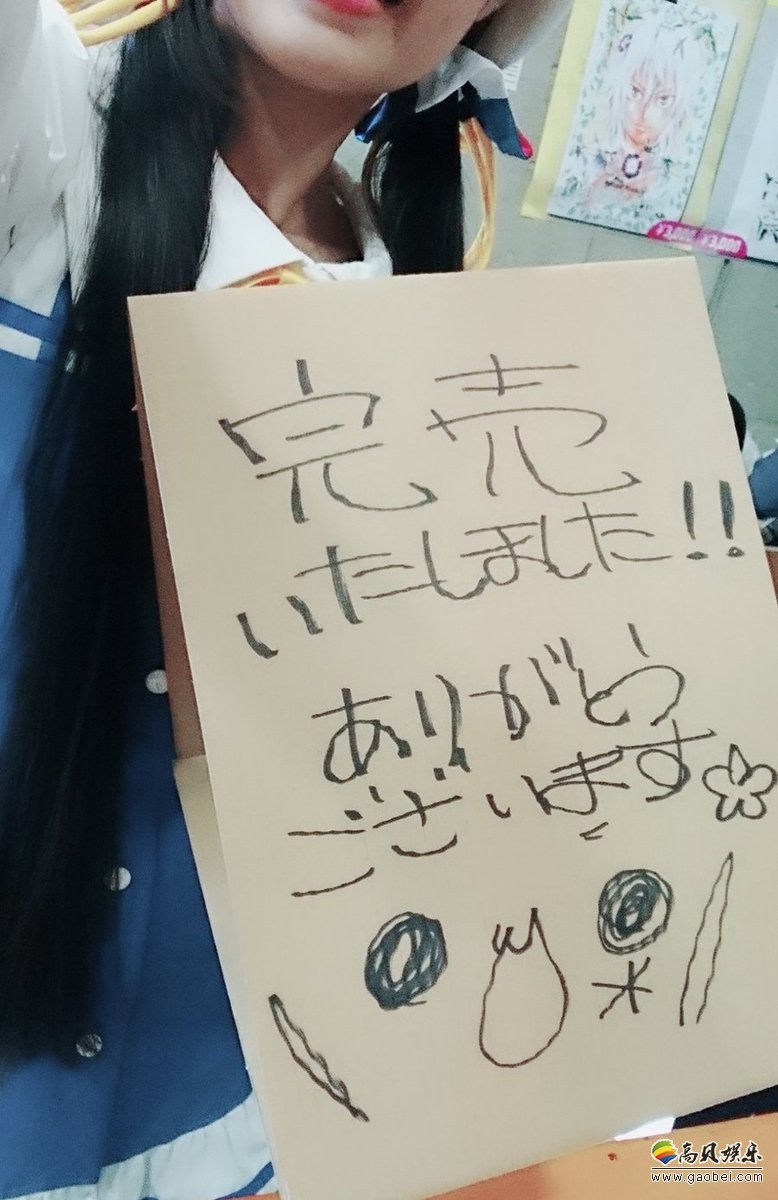 完売
いたしました!!
ありがとう
ございます
高贝娱乐
www.gaobei.com